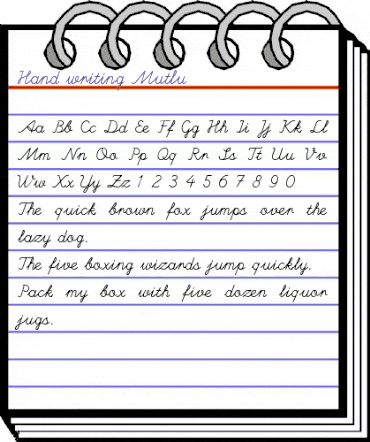 Hand writing Mutlu
Aa Bb Cc Dd Ee Ff Gg Hh Ii Jj Kk Ll
Mm Nn Oo Pp Qq Rr Ss Tt Uu Vv
Ww Xx Yy Zz 1 2 3 4 5 6 7 8 9 0
The quick brown fox jumps over the
lazy dog.
The five boxing wizards jump quickly.
Pack my box with five dozen liquor
jugs.